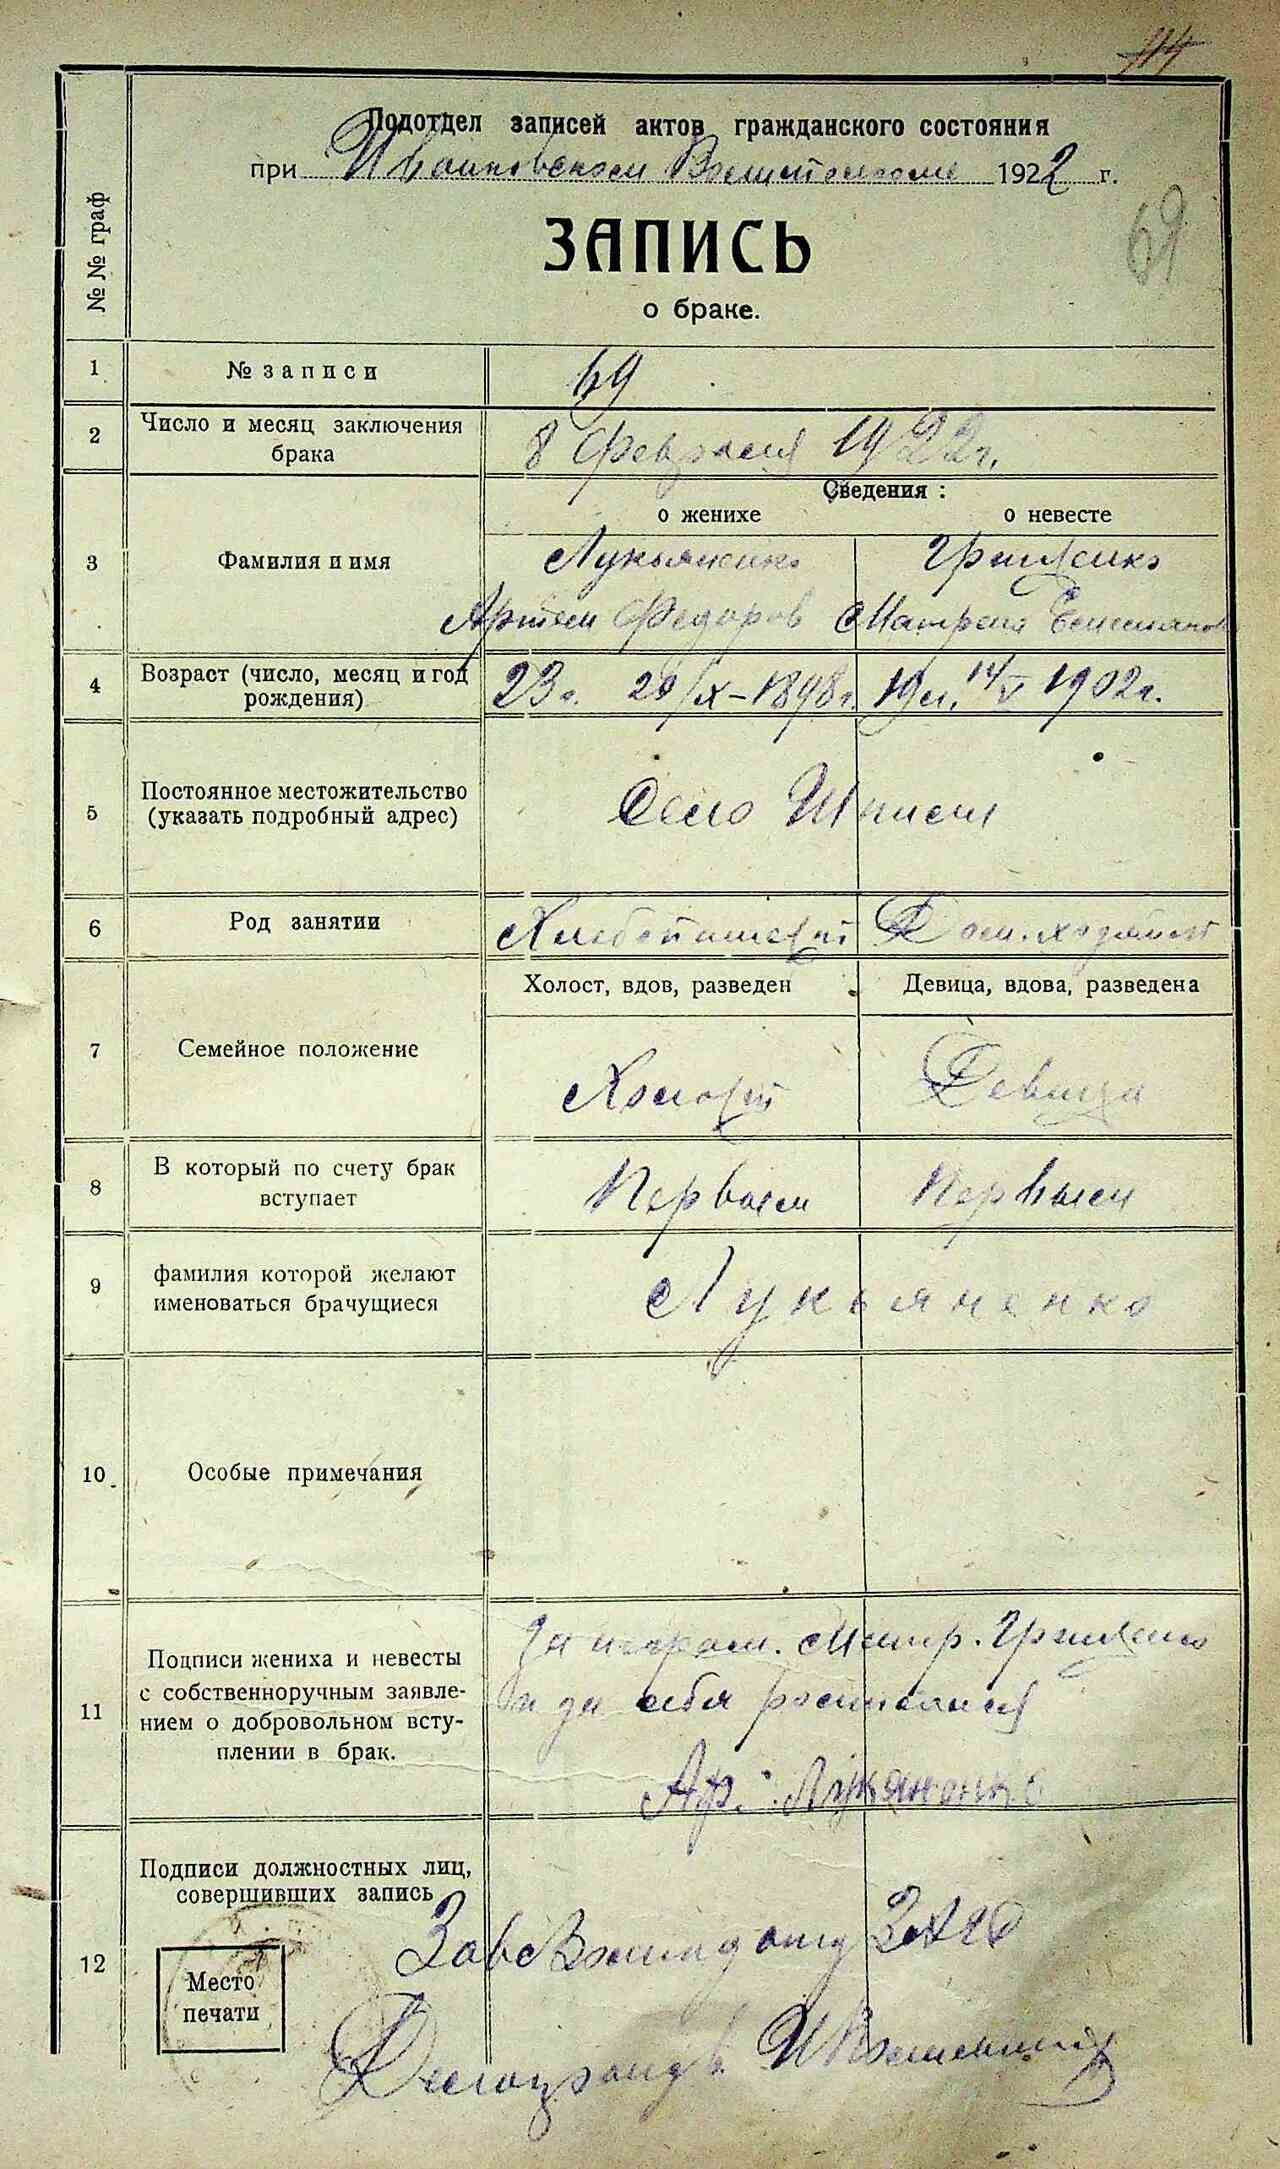 114
Подотдел записей актов гражданского состояния
при Иванковском Волисполкоме 1922 г.
ЗАПИСЬ
о браке.
69
№ № граф
1 № записи 69
2 Число и месяц заключения
брака
8 февраля 1922 г.
Сведения :
о женихе о невесте
3 Фамилия и имя
Лукьяненко Грищенко
Артем Федоров Матрена
4 Возраст (число, месяц и год
рождения)
23 г. 20/X–1898 г. 19 л. 14/V 1902 г.
5 Постоянное местожительство
(указать подробный адрес)
Село Шпили
6 Род занятии
Хлебопашест Дом. хозяйст
7 Семейное положение
Холост, вдов, разведен Девица, вдова, разведена
Холост Девица
8 В который по счету брак
вступает
Первым Первым
9 фамилия которой желают
именоваться брачущиеся
Лукьяненко
10 Особые примечания
11 Подписи жениха и невесты
с собственноручным заявле-
нием о добровольном всту-
плении в брак.
За неграм. Матр. Грищенко
и за себя
Ар. Лукяненко
12 Подписи должностных лиц,
совершивших запись
Место
печати
Зав.
Делопроизвод